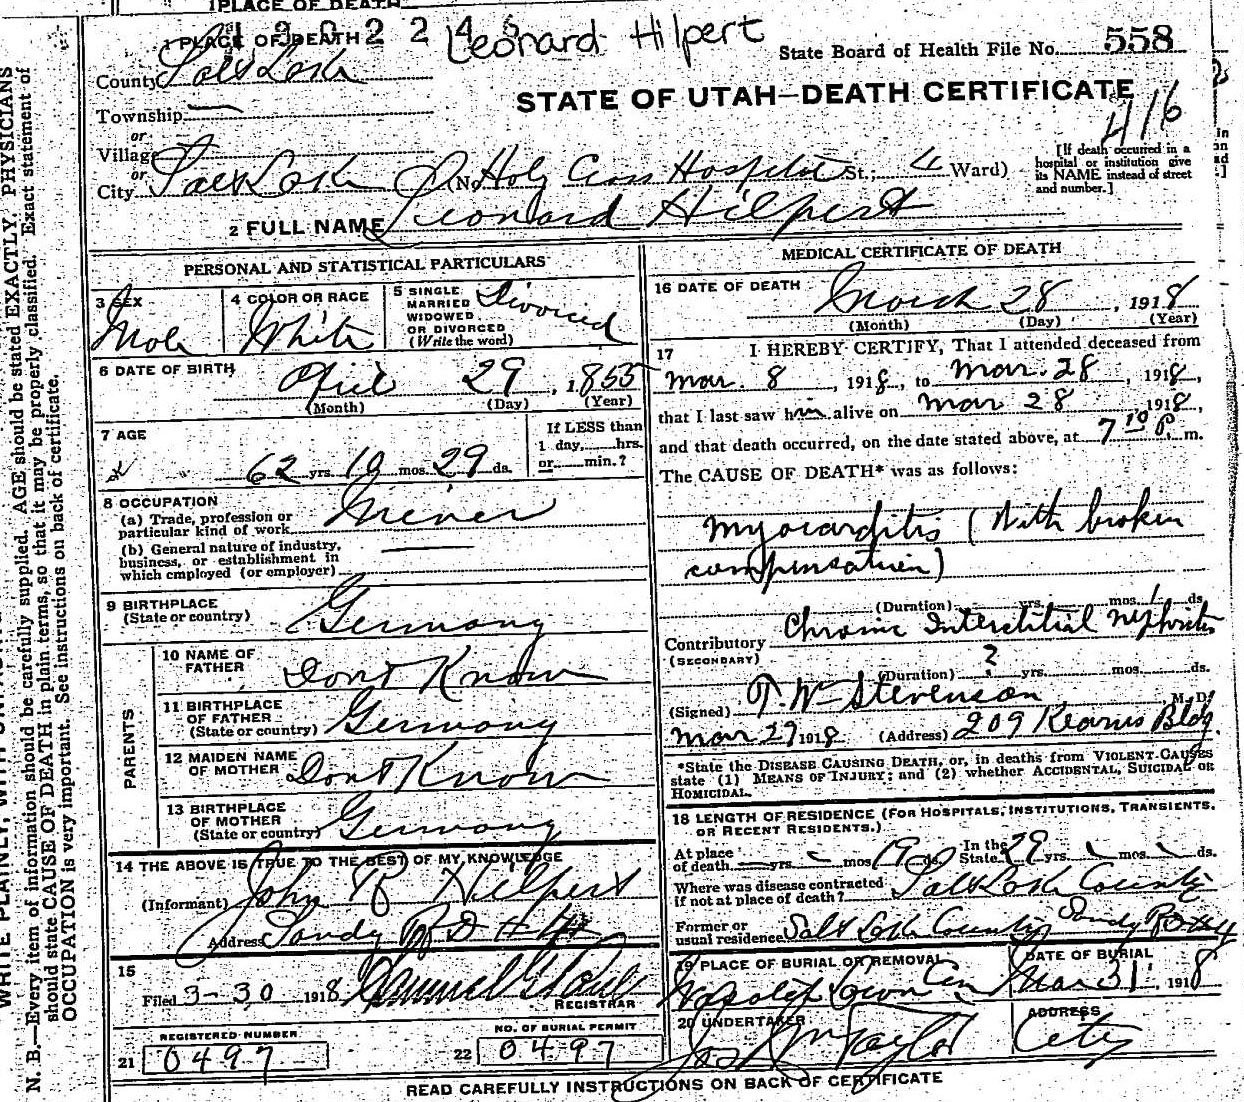 1 PLACE OF DEATH
Leonard Hilpert
State Board of Health File No. 558
1 PLACE OF DEATH
County Salt Lake
STATE OF UTAH—DEATH CERTIFICATE
416
Township —
or
Village
or
City Salt Lake (No. Holy Cross Hospital St.; 4 Ward)
[If death occurred in a hospital or institution give its NAME instead of street and number.]
2 FULL NAME Leonard Hilpert
PERSONAL AND STATISTICAL PARTICULARS
3 SEX
Male
4 COLOR OR RACE
White
5 SINGLE MARRIED WIDOWED OR DIVORCED (Write the word)
Divorced
6 DATE OF BIRTH
April 29, 1855
(Month) (Day) (Year)
7 AGE
62 yrs. 10 mos. 29 ds.
If LESS than 1 day, hrs. or min.?
8 OCCUPATION
(a) Trade, profession or particular kind of work Miner
(b) General nature of industry, business, or establishment in which employed (or employer)
9 BIRTHPLACE
(State or country) Germany
PARENTS
10 NAME OF FATHER Dont Know
11 BIRTHPLACE OF FATHER (State or country) Germany
12 MAIDEN NAME OF MOTHER Dont Know
13 BIRTHPLACE OF MOTHER (State or country) Germany
14 THE ABOVE IS TRUE TO THE BEST OF MY KNOWLEDGE
(Informant) John B Hilpert
Address Sandy R D
15
Filed 3-30 1918
REGISTRAR
REGISTERED NUMBER
21 0497
NO. OF BURIAL PERMIT
22 0497
MEDICAL CERTIFICATE OF DEATH
16 DATE OF DEATH
March 28, 1918
(Month) (Day) (Year)
17 I HEREBY CERTIFY, That I attended deceased from
Mar. 8, 1918, to Mar. 28, 1918,
that I last saw him alive on Mar 28 1918,
and that death occurred, on the date stated above, at 7 10 P. m.
The CAUSE OF DEATH* was as follows:
Myocarditis (With broken
compensation)
(Duration) yrs. mos. 1 ds.
Contributory Chronic Interstitial Nephritis
(SECONDARY)
(Duration) ? yrs. mos. ds.
(Signed) T. Wm Stevenson M. D.
Mar 29 1918 (Address) 209 Kearns Bldg.
*State the DISEASE CAUSING DEATH, or, in deaths from VIOLENT CAUSES state (1) MEANS OF INJURY; and (2) whether ACCIDENTAL, SUICIDAL OR HOMICIDAL.
18 LENGTH OF RESIDENCE (FOR HOSPITALS, INSTITUTIONS, TRANSIENTS, OR RECENT RESIDENTS.)
At place of death yrs. mos. 19 ds. In the State 29 yrs. mos. ds.
Where was disease contracted if not at place of death? Salt Lake County
Former or usual residence Salt Lake County Sandy
19 PLACE OF BURIAL OR REMOVAL
DATE OF BURIAL
Mar 31, 1918
20 UNDERTAKER
Jos Wm Taylor
ADDRESS
City
READ CAREFULLY INSTRUCTIONS ON BACK OF CERTIFICATE
N. B.—Every item of information should be carefully supplied. AGE should be stated EXACTLY. PHYSICIANS
should state CAUSE OF DEATH in plain terms, so that it may be properly classified. Exact statement of
OCCUPATION is very important. See instructions on back of certificate.